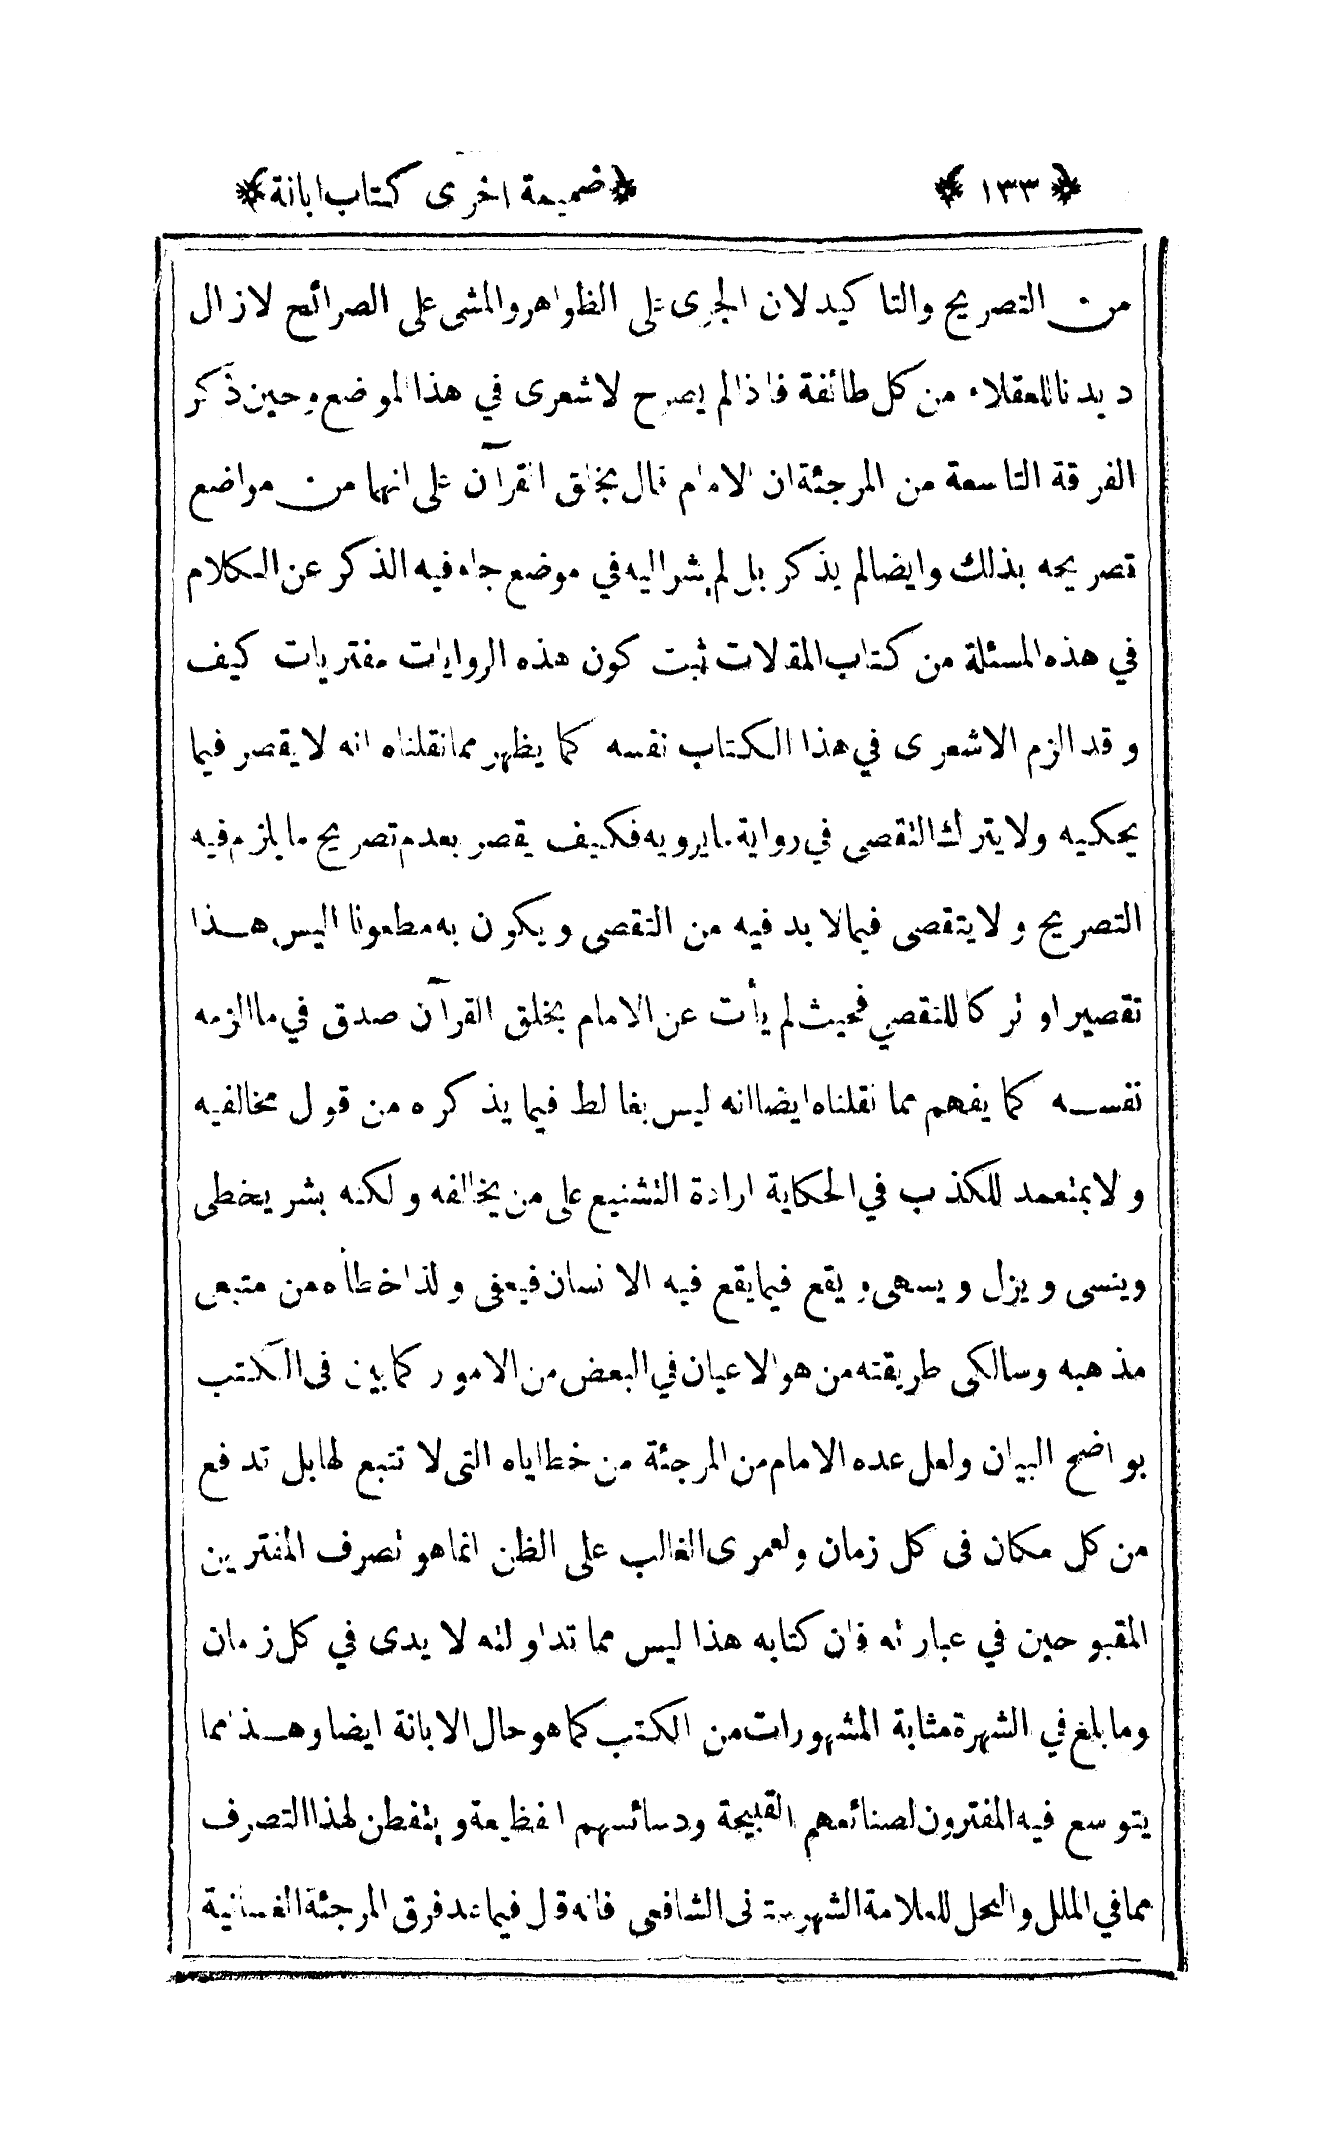 ﴿ ١٣٣ ﴾ ﴿ضميمة اخرى كتاب ابانة﴾
من التصريح والتاكيد لان الجرى على الظواهر والمشى على الصرائح لازال
ديدنا للعقلاء من كل طائفة فاذا لم يصرح لاشعرى في هذا الموضع وحين ذكر
الفرقة التاسعة من المرجئة ان الامام قال بخلق القرآن على انهما من مواضع
تصريحه بذلك وايضا لم يذكر بل لم يشر اليه في موضع جاء فيه الذكر عن الكلام
في هذه المسئلة من كتاب المقالات ثبت كون هذه الروايات مفتريات كيف
وقد الزم الاشعرى في هذا الكتاب نفسه كما يظهر مما نقلناه انه لا يقصر فيما
يحكيه ولا يترك التقصى في رواية ما يرويه فكيف يقصر بعدم تصريح ما يلزم فيه
التصريح ولا يتقصى فيما لا بد فيه من التقصى ويكون به مطعونا اليس هذا
تقصيرا وتركا للتقصي فحيث لم يأت عن الامام بخلق القرآن صدق في ما الزمه
نفسه كما يفهم مما نقلناه ايضا انه ليس بغالط فيما يذكره من قول مخالفيه
ولا بمتعمد للكذب في الحكاية ارادة التشنيع على من يخالفه ولكنه بشر يخطى
وينسى ويزل ويسهى ويقع فيما يقع فيه الانسان فيعفى ولذا خطأه من متبعى
مذهبه وسالكى طريقته من هو الاعيان في البعض من الامور كما بين فى الكتب
بواضح البيان ولعل عده الامام من المرجئة من خطاياه التى لا تتبع لها بل تدفع
من كل مكان فى كل زمان ولعمرى الغالب على الظن انما هو تصرف المفترين
المقبوحين في عبارته فان كتابه هذا ليس مما تداولته لايدى في كل زمان
وما بلغ في الشهرة مثابة المشهورات من الكتب كما هو حال الابانة ايضا وهذا مما
يتوسع فيه المفترون لصنائعهم القبيحة ودسائسهم الفظيعة ويتفطن لهذا التصرف
مما في الملل والنحل للعلامة الشهرستانى الشافعى فانه قال فيما عد فرق المرجئة الغسانية